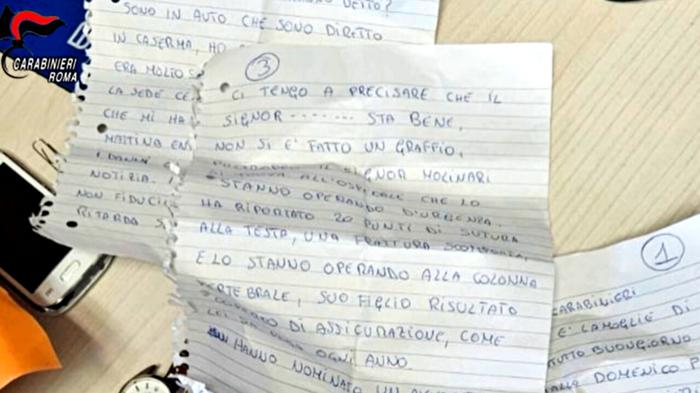 CARABINIERI
ROMA
DETTO?
SONO IN AUTO CHE SONO DIRETTO
IN CASERMA, HO
ERA MOLTO
LA SEDE
CHE MI HA
MATTINA
I DANNI
NOTIZIA.
NON
RITARDA
3
CI TENGO A PRECISARE CHE IL
SIGNOR ------- STA BENE,
NON SI E' FATTO UN GRAFFIO,
IL SIGNOR MOLINARI
ALL'OSPEDALE CHE LO
STANNO OPERANDO D'URGENZA.
HA RIPORTATO 20 PUNTI DI SUTURA
ALLA TESTA, UNA FRATTURA SCOMPOSTA,
E LO STANNO OPERANDO ALLA COLONNA
VERTEBRALE, SUO FIGLIO RISULTATO
DI ASSICURAZIONE, COME
OGNI ANNO.
HANNO NOMINATO UN
1
CARABINIERI
E' LA MOGLIE DI
TUTTO BUONGIORNO
DOMENICO